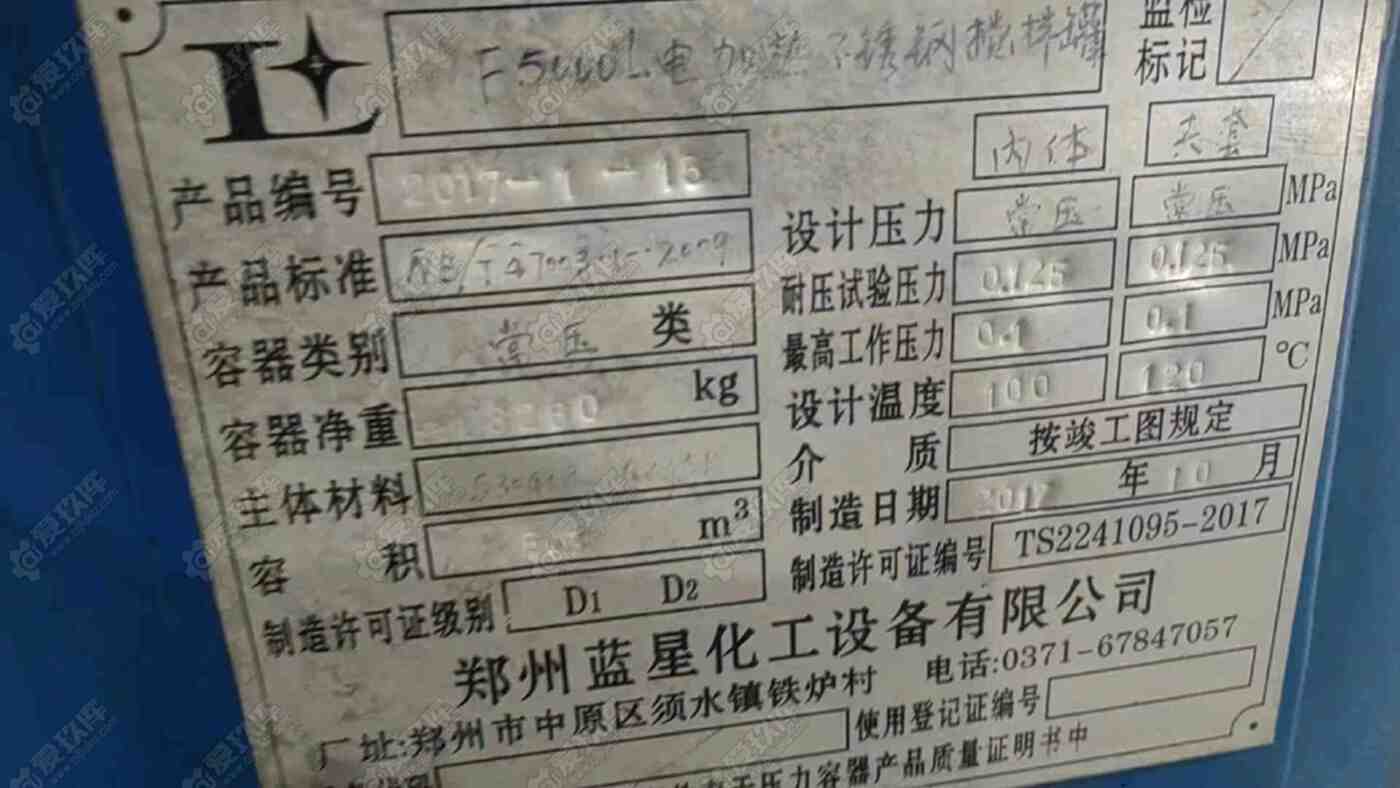 F5000L电加热不锈钢搅拌罐
监检
标记
产品编号 2017-1-15
产品标准
容器类别 常压 类
容器净重 kg
主体材料
容 积 m³
制造许可证级别 D1 D2
内体 夹套
设计压力 常压 常压 MPa
耐压试验压力 0.125 0.125 MPa
最高工作压力 0.1 0.1 MPa
设计温度 100 120 ℃
介 质 按竣工图规定
制造日期 2017 年 10 月
制造许可证编号 TS2241095-2017
郑州蓝星化工设备有限公司
厂址:郑州市中原区须水镇铁炉村 电话:0371-67847057
使用登记证编号
压力容器产品质量证明书中
爱玖库